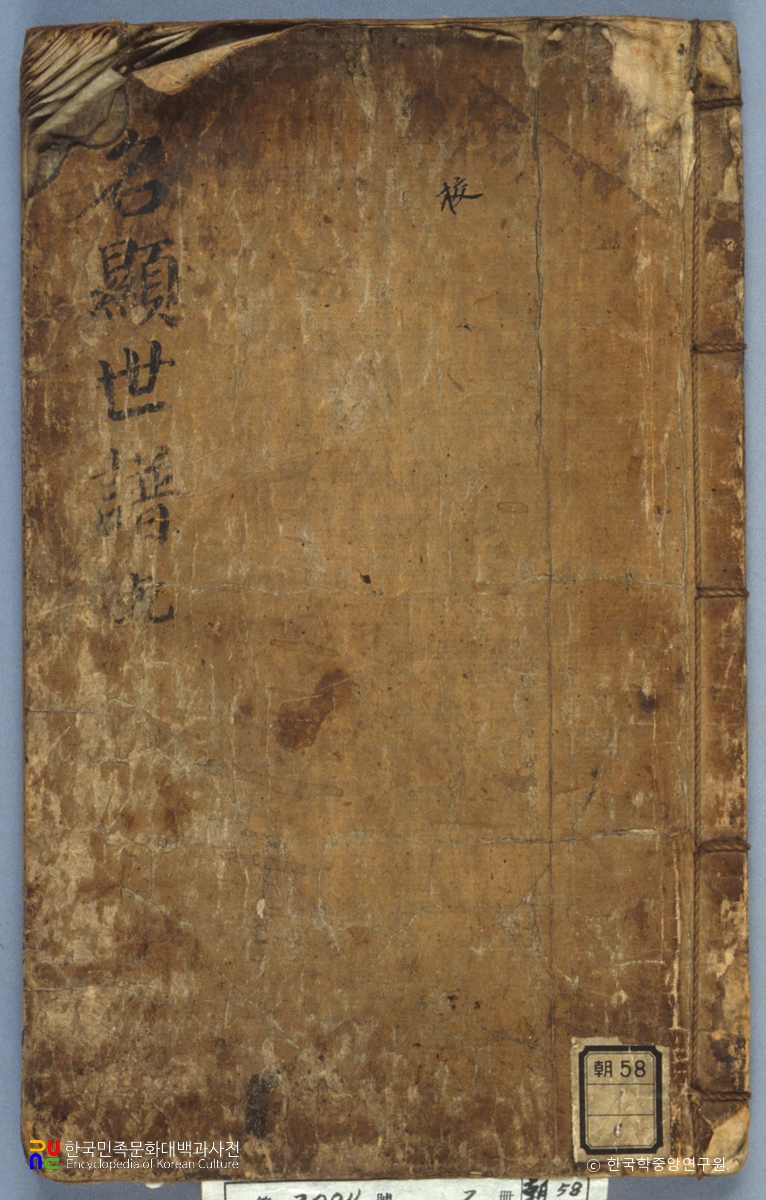 名顯世譜
校
朝 58
한국민족문화대백과사전
Encyclopedia of Korean Culture
© 한국학중앙연구원
號
冊
朝 58